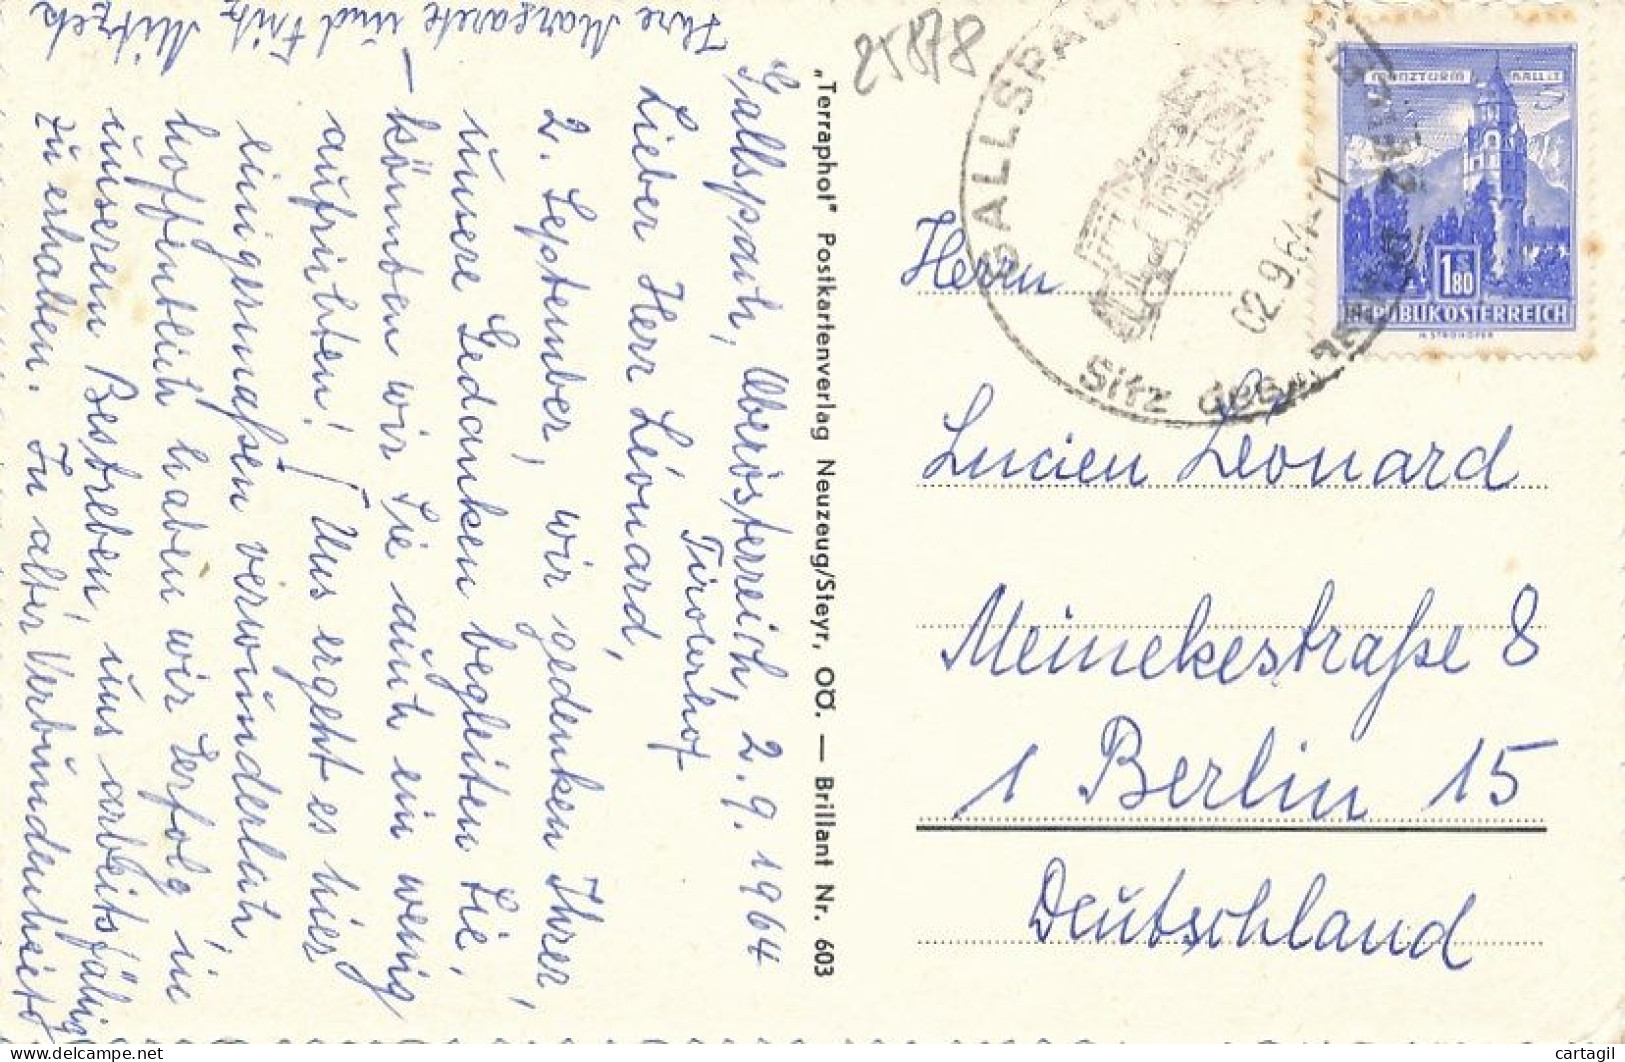 Gallspach, Oberösterreich, 2.9.1964
Tirolerhof
Lieber Herr Léonard,
2. September, wir gedenken Ihrer,
unsere Gedanken begleiten Sie,
könnten wir Sie auch ein wenig
aufrichten! Uns ergeht es hier
einigermaßen verwunderlich,
hoffentlich haben wir Erfolg in
unserem Bestreben, uns arbeitsfähig
zu erhalten. In alter Verbundenheit
— Ihre Margarete und Fritz Mitzek
"Terraphot" Postkartenverlag Neuzeug/Steyr, OÖ. — Brillant Nr. 603
25878
GALLSPACH
Sitz des
02.9.64-11
MÜNZTURM HALL i.T.
S
1.80
REPUBLIK ÖSTERREICH
H. STROHOFER
Herrn
Lucien Léonard
Meinekestraße 8
1 Berlin 15
Deutschland
delcampe.net
cartagil